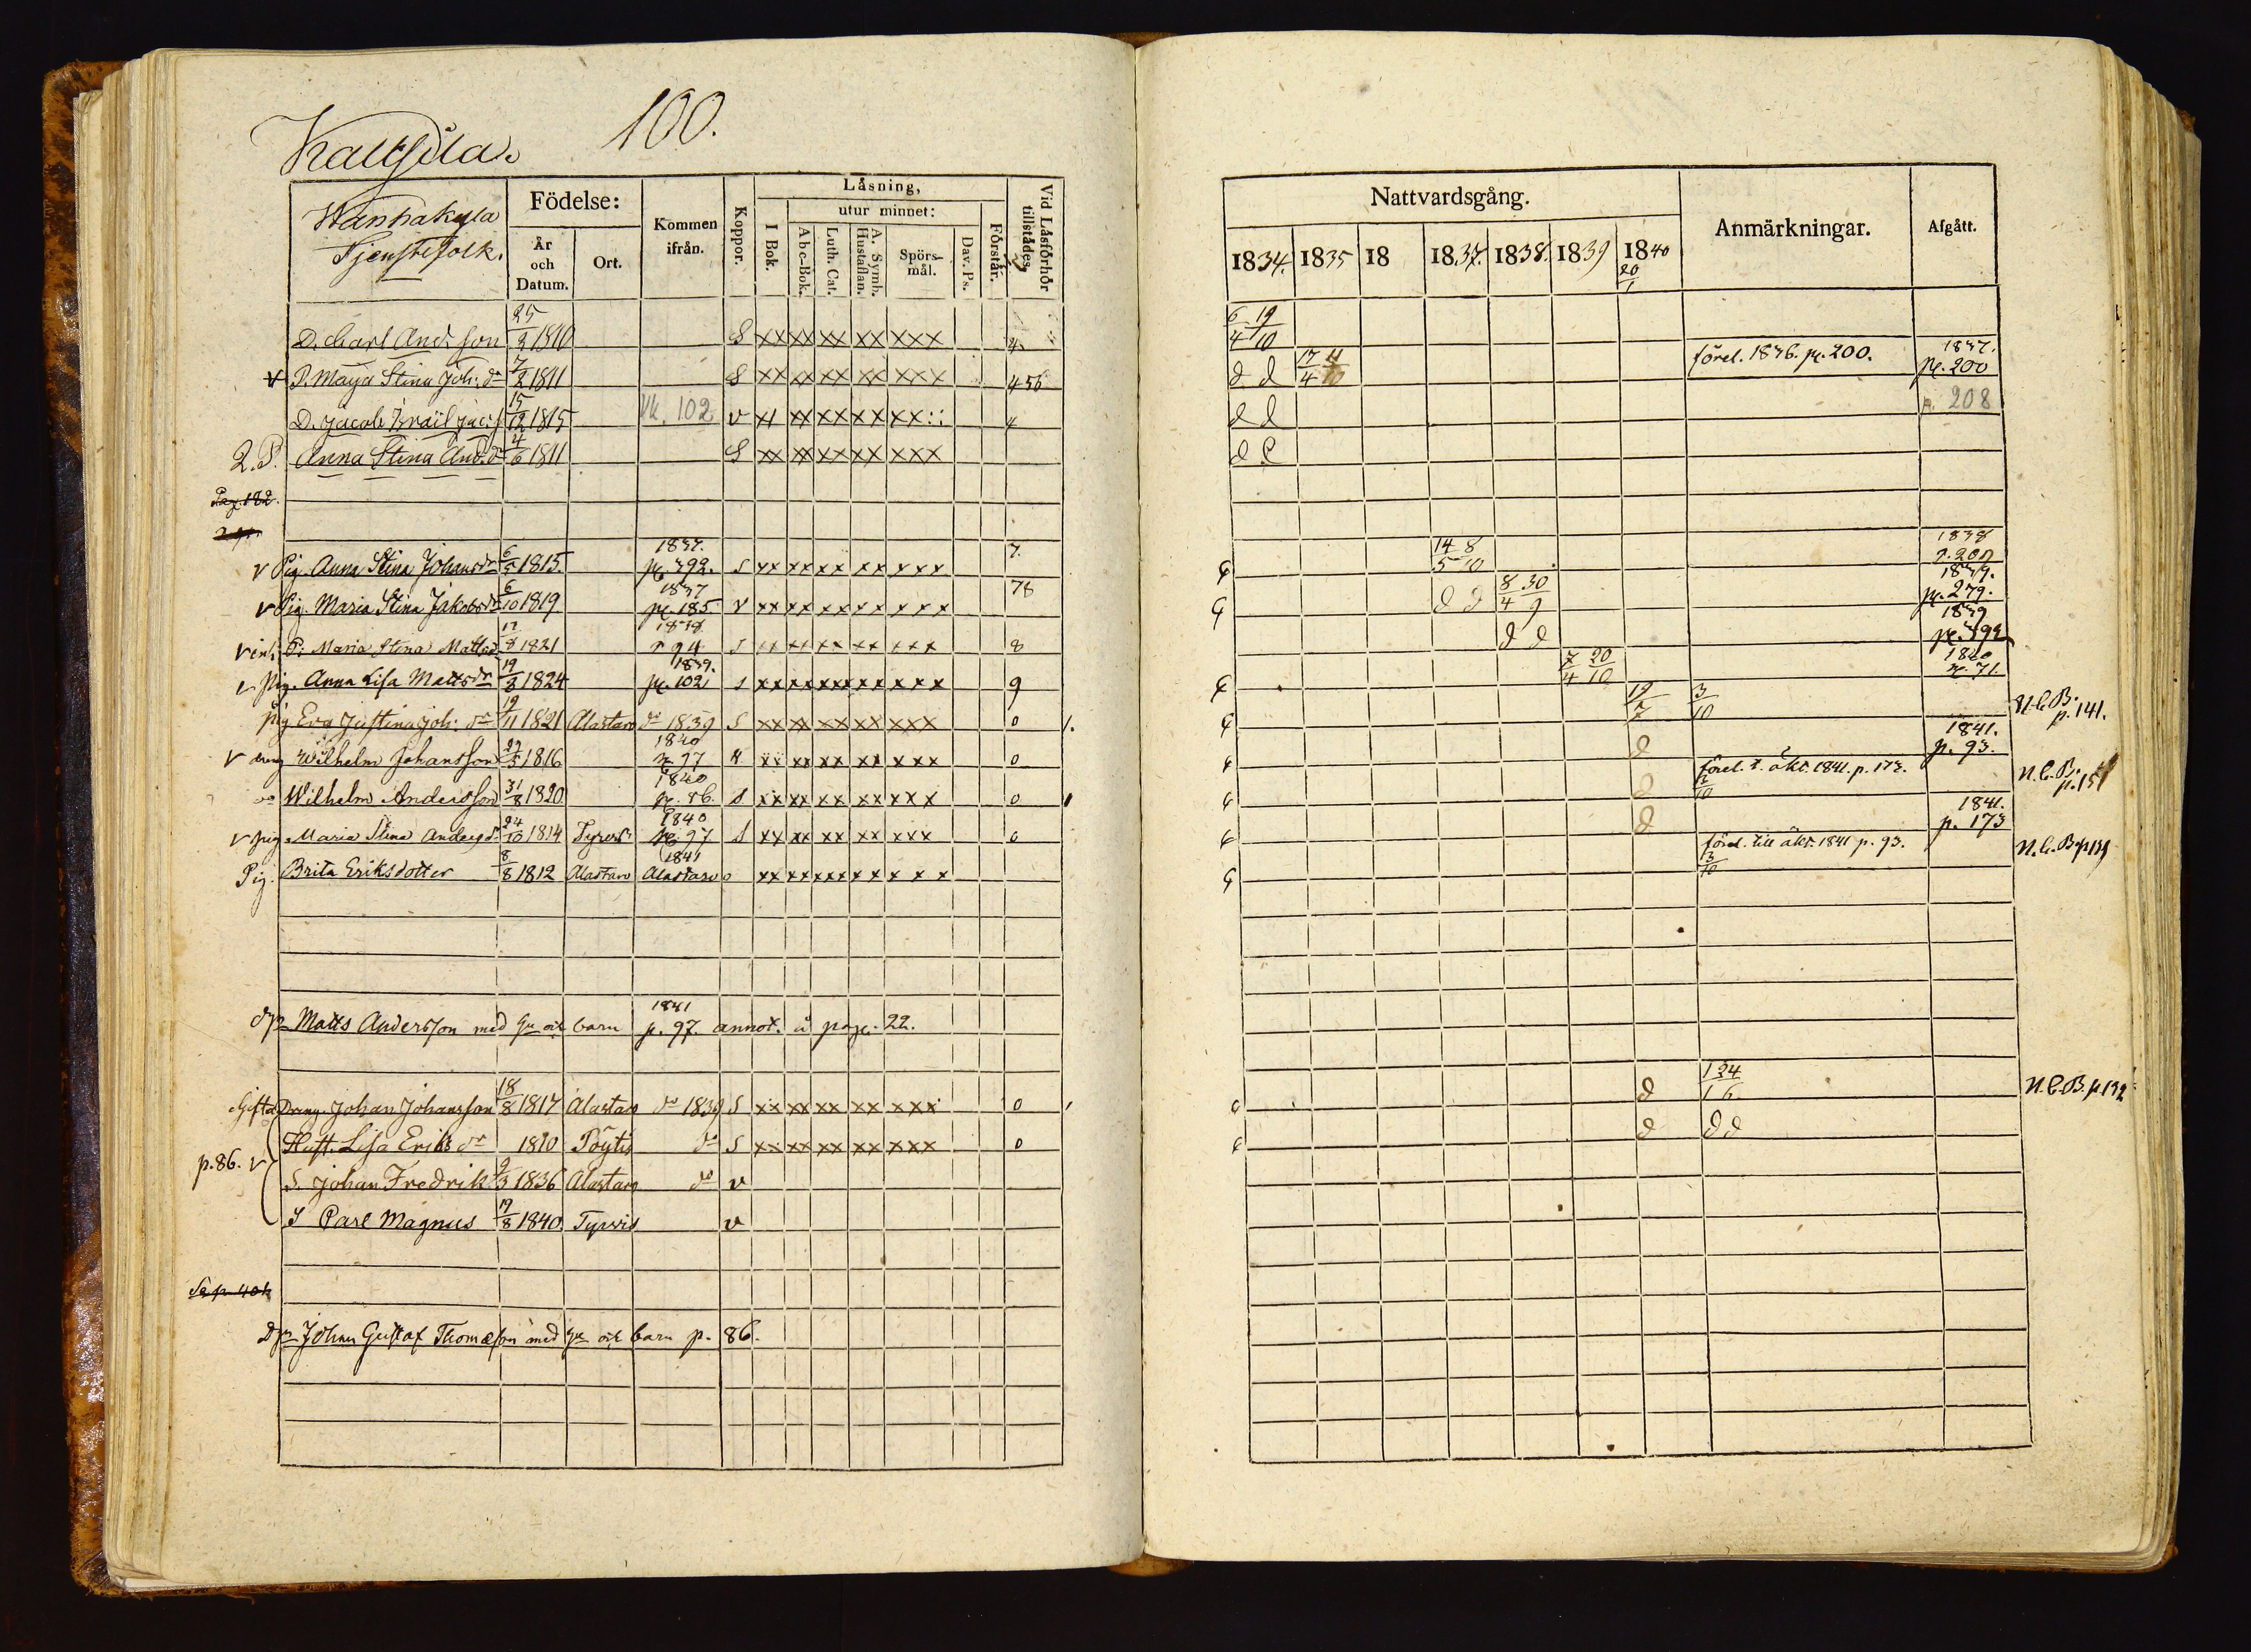 100.
Kaltsila.
Wanhakylä
Tjenstefolk.
Födelse:
År och Datum.
Ort.
Kommen ifrån.
Koppor.
Läsning,
I Bok.
utur minnet:
Abc-Bok.
Luth. Cat.
A. Symb. Hustaflan.
Spörs-mål.
Dav. Ps.
Förstår.
Vid Läsförhör tillstädes.
D. Carl And:son 25/2 1810 S xx xx xx xx xxx 4
v P. Maja Stina Joh:dr 7/2 1811 S xx xx xx xx xxx 456
D. Jacob Israël Jac:s 15/12 1815 Vk. 102 v x1 xx xx xx xx:: 4
2.P. Anna Stina And.dr 4/6 1811 S xx xx xx xx xxx
Pag. 182.
v Pig. Anna Stina Johansdr 6/5 1815. 1837. p. 392. s xx xx xx xx xxx 7.
v Pig. Maria Stina Jakobsdr 6/10 1819 1837 p. 185 v xx xx xx xx xxx 78
P: Maria Stina Mattsd 1821 1838 p 94 s xx xx xx xx xxx 8
v Pig. Anna Lisa Mattsdr 19/8 1824 1839. p. 102 s xx xx xx xx xxx 9
pig Eva Justina Joh: dr 19/11 1821 Alastaro do 1839 S xx xx xx xx xxx 0 1.
v dreng Wilhelm Johansson 1816 1840 p 97 xx xx xx xxx 0
do Wilhelm Andersson 31/8 1820 1840 p. 86. s xx xx xx xx xxx 0
v pig Maria Stina Andersd. 24/10 1814 1840 p. 97 s xx xx xx xx xxx 0
Pig. Brita Eriksdotter 8/8 1812 Alastaro 1841 Alastaro xx xx xx xx xxx
Matts Andersson med hu och barn 1841 p. 97. annot. å page. 22.
Gifta Dreng. Johan Johansson 18/8 1817 Alastaro do 1839 S xx xx xx xx xxx 0
Hust. Lisa Eriks dr 1810 Pöytis do S xx xx xx xx xxx 0
p. 86. v
S. Johan Fredrik 9/3 1836 Alastaro do v
S Carl Magnus 19/8 1840. Tyrvis v
Johan Gustaf Thomasson med hu och barn p. 86.
Nattvardsgång.
Anmärkningar.
Afgått.
1834. 1835 18 1837. 1838. 1839 1840
20/1
6/4 19/10
d d 17/4 4/10 förel. 1836. p. 200. 1837. p. 200
d d p. 208
d d
14/5 8/10 1838 p. 200
d d 8/4 30/9 1839. p. 279.
d d 1839 p. 392
7/4 20/10 1840 p. 71.
19/7 3/10 N.C.B. p. 141.
d 1841. p. 93.
d förel. t. äkt. 1841. p. 173. 12/10 N.C.B. p. 151
d 1841. p. 173
förel. till äkt. 1841 p. 93. 3/10 N.C.B. p 139
d 1 24/1 6. N.C.B. p 132
d d d